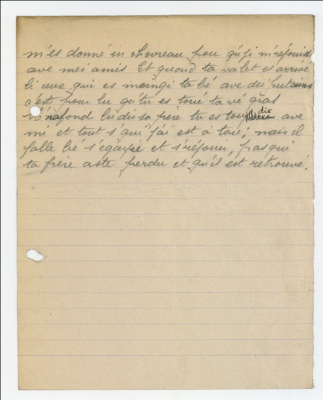 m'és donné en chevreau pou qu'j' m'réfouis
avé mes amis. Et quand ta valet es arrivé
li euve qui es maingi ta bé avé des
c'est pour lu qu'tu es toué ta vé gras
m'n' réfond lu du so père tu es tou avé
mé et tout s'qui j'ai est à taié; mais il
falle bé s'égayié et s'réfoui, pasqui
ta frère aste perdu et qu'il est retrouvé.